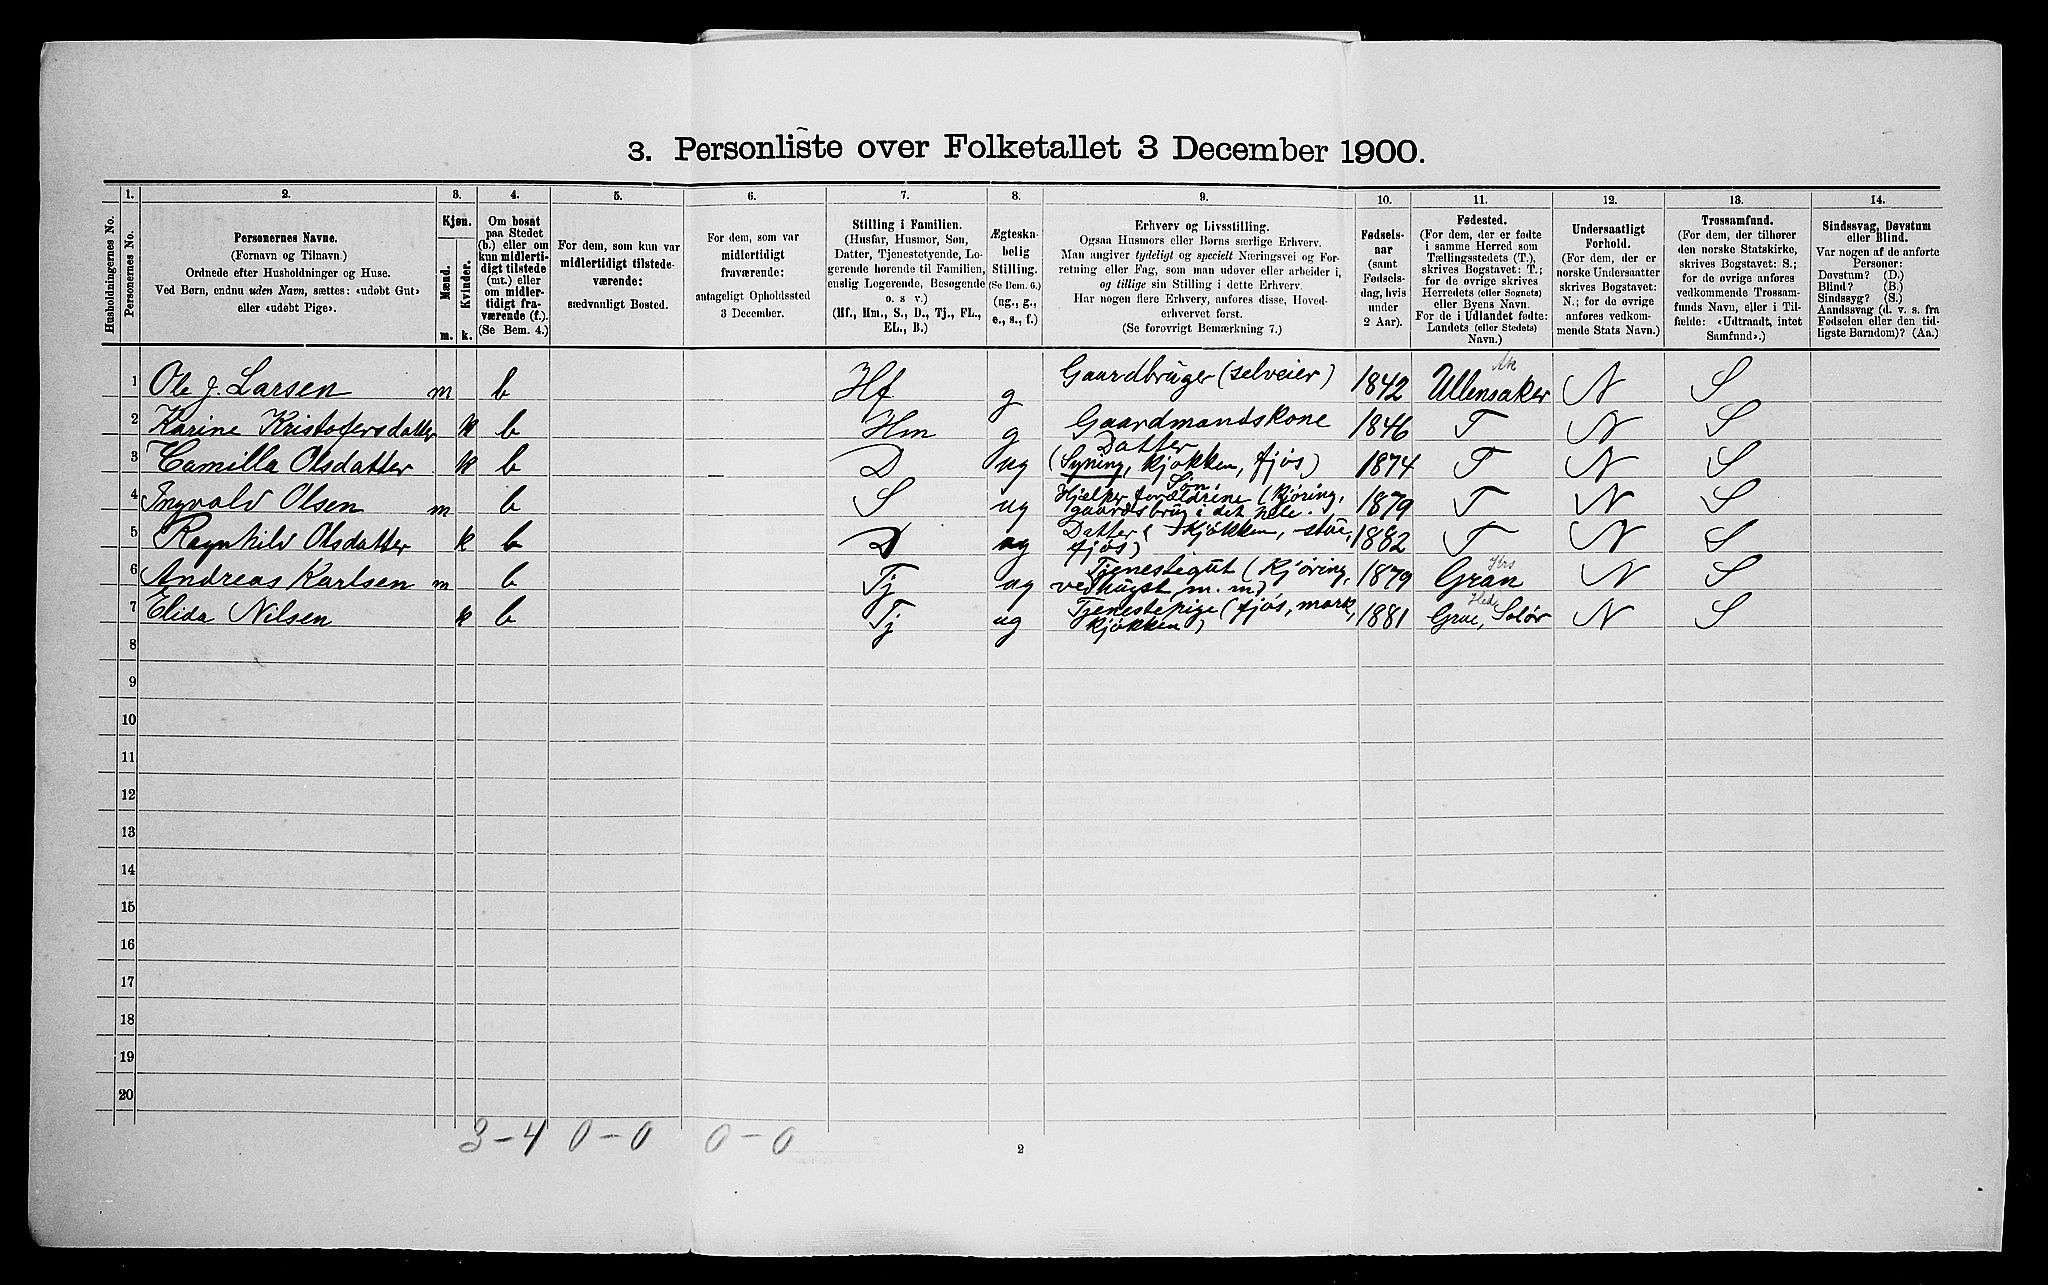 3. Personliste over Folketallet 3 December 1900.
1. 2. 3. 4. 5. 6. 7. 8. 9. 10. 11. 12. 13. 14.
Husholdningernes No.
Personernes No.
Personernes Navne.
(Fornavn og Tilnavn.)
Ordnede efter Husholdninger og Huse.
Ved Børn, endnu uden Navn, sættes: «udøbt Gut»
eller «udøbt Pige».
Kjøn.
Mænd.
Kvinder.
m. k.
Om bosat
paa Stedet
(b.) eller om
kun midlerti-
digt tilstede
(mt.) eller
om midler-
tidigt fra-
værende (f.).
(Se Bem. 4.)
For dem, som kun var
midlertidigt tilstede-
værende:
sædvanligt Bosted.
For dem, som var
midlertidigt
fraværende:
antageligt Opholdssted
3 December.
Stilling i Familien.
(Husfar, Husmor, Søn,
Datter, Tjenestetyende, Lo-
gerende hørende til Familien,
enslig Logerende, Besøgende
o. s v.)
(Hf., Hm., S., D., Tj., FL.,
EL., B.)
Ægteska-
belig
Stilling.
(Se Bem. 6.)
(ug., g.,
e., s., f.)
Erhverv og Livsstilling.
Ogsaa Husmors eller Børns særlige Erhverv.
Man angiver tydeligt og specielt Næringsvei og For-
retning eller Fag, som man udøver eller arbeider i,
og tillige sin Stilling i dette Erhverv.
Har nogen flere Erhverv, anføres disse, Hoved-
erhvervet først.
(Se forøvrigt Bemærkning 7.)
Fødsels-
aar
(samt
Fødsels-
dag, hvis
under
2 Aar).
Fødested.
(For dem, der er fødte
i samme Herred som
Tællingsstedets (T.),
skrives Bogstavet: T.;
for de øvrige skrives
Herredets (eller Sognets)
eller Byens Navn.
For de i Udlandet fødte:
Landets (eller Stedets)
Navn.)
Undersaatligt
Forhold.
(For dem, der er
norske Undersaatter
skrives Bogstavet:
N.; for de øvrige
anføres vedkom-
mende Stats Navn.)
Trossamfund.
(For dem, der tilhører
den norske Statskirke,
skrives Bogstavet: S.;
for de øvrige anføres
vedkommende Trossam-
funds Navn, eller i Til-
fælde: «Udtraadt, intet
Samfund».)
Sindssvag, Døvstum
eller Blind.
Var nogen af de anførte
Personer:
Døvstum? (D.)
Blind? (B.)
Sindssyg? (S.)
Aandssvag (d. v. s. fra
Fødselen eller den tid-
ligste Barndom)? (Aa.)
Ak
1 Ole J. Larsen m b Hf g Gaardbruger (selveier) 1842 Ullensaker N S
2 Karine Kristofersdatter k b Hm g Gaardmandskone 1846 T N S
Datter
3 Camilla Olsdatter k b D ug (Syning, kjøkken, fjøs) 1874 T N S
Søn
4 Ingvald Olsen m b S ug Hjælper forældrene (kjøring, 1879 T N S
gaardsbrug i det hele.
5 Ragnhild Olsdatter k b D ug Datter (kjøkken, stue, 1882 T N S
fjøs)
Krs
6 Andreas Karlsen m b Tj ug Tjenestegut (kjøring, 1879 Gran N S
vedhugst m. m)
Hed
7 Elida Nilsen k b Tj ug Tjenestepige (fjøs, mark, 1881 Grue, Solør N S
kjøkken)
8
9
10
11
12
13
14
15
16
17
18
19
20
3-4 0-0 0-0
2